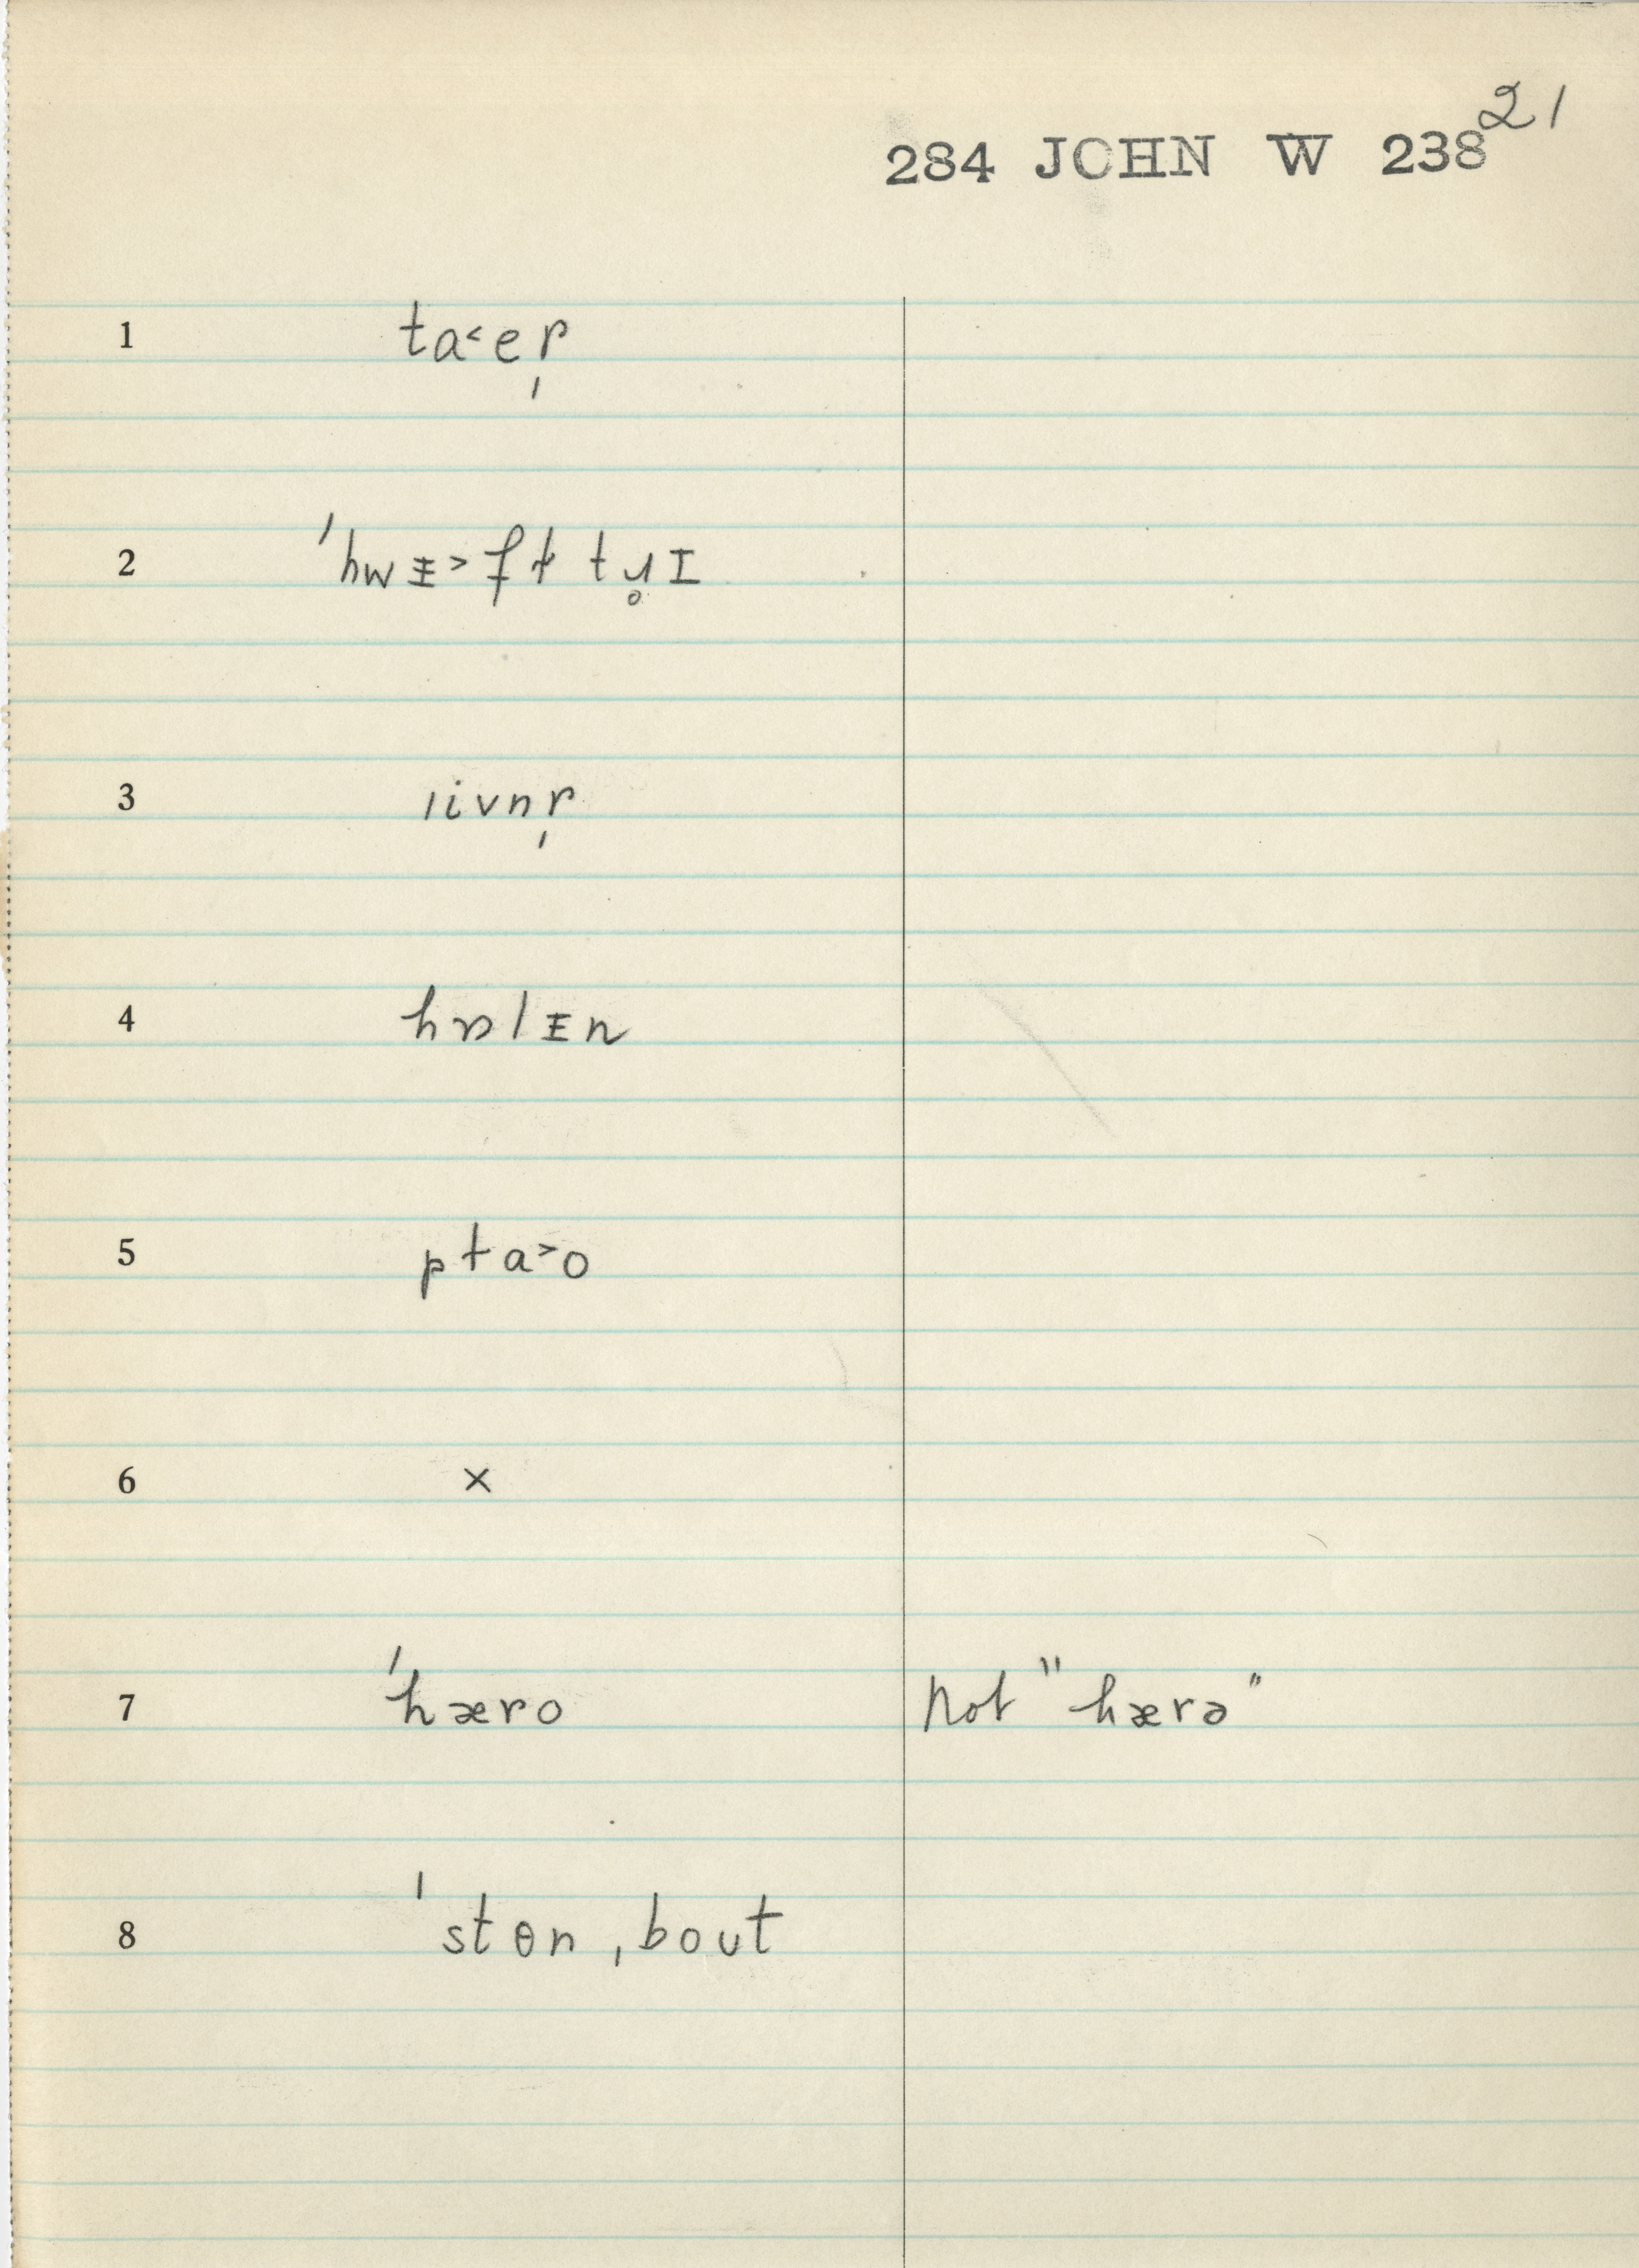 21
284 JOHN W 238
1 ta˂er̩
2 ˈhwᵻ˃ƒt tɹ̥ɪ
3 livnr̩
4 hɒlᵻn
5 pta˃o
6 ×
7 ˈhæro not "hærə"
8 ˈstɵn ˌbout